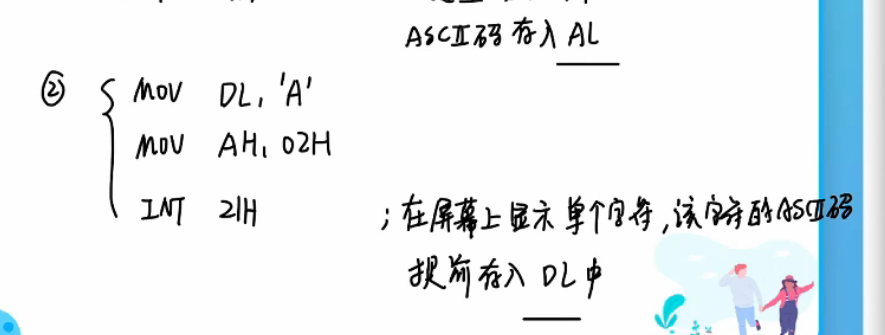 ASCII码存入 AL
② MOV DL, 'A'
MOV AH, 02H
INT 21H ;在屏幕上显示单个字符,该字符的ASCII码
提前存入 DL中